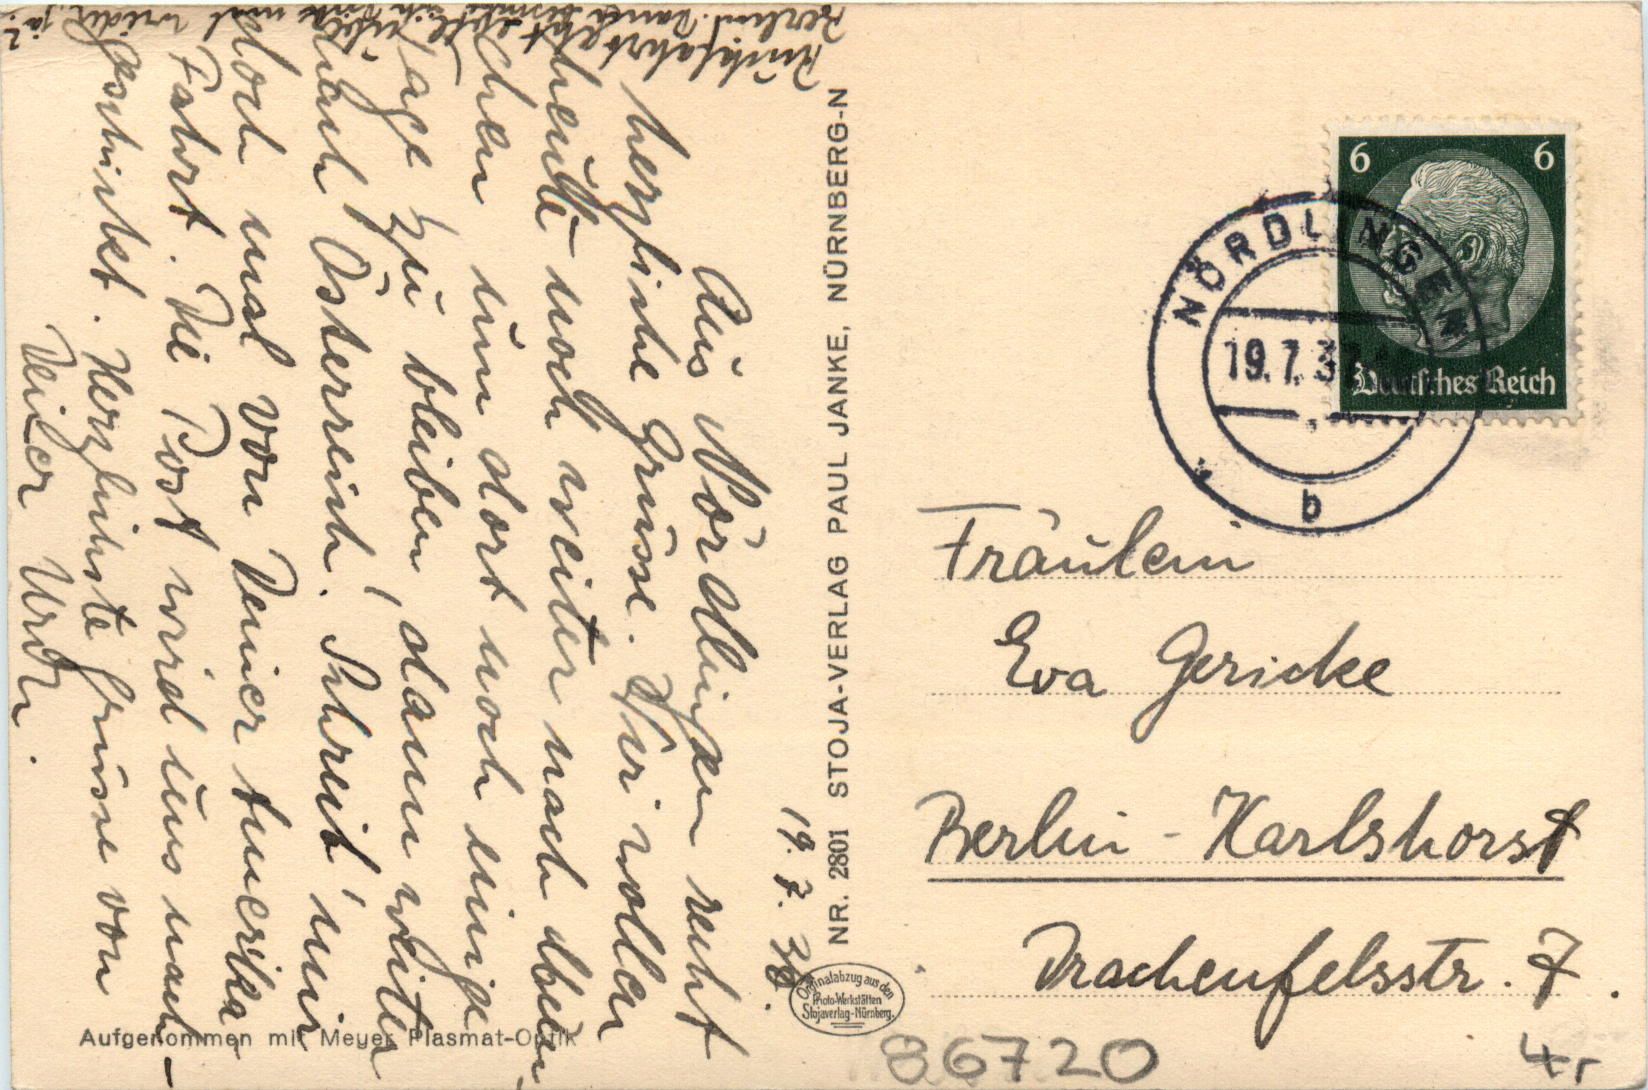 19. 7. 38.
Aus Nördlingen recht
herzliche Grüsse. Wir wollen
heute noch weiter nach Mün-
chen um dort noch einige
Tage zu bleiben, dann weiter
nach Österreich. Schreib' mir
doch mal von Deiner Amerika-
Fahrt. Die Post wird uns nach-
geschickt. Herzlichste Grüsse von
Deiner
Rückfahrt geht evtl. über
Berlin. Dann besuche ich Dich mal wieder, ja?
Aufgenommen mit Meyer Plasmat-Optik
NR. 2801 STOJA-VERLAG PAUL JANKE, NÜRNBERG-N
Originalabzug aus den
Photo-Werkstätten
Stojaverlag-Nürnberg.
6 6
Deutsches Reich
NÖRDLINGEN
19. 7. 3
b
Fräulein
Eva Gericke
Berlin - Karlshorst
Drachenfelsstr. 7.
86720